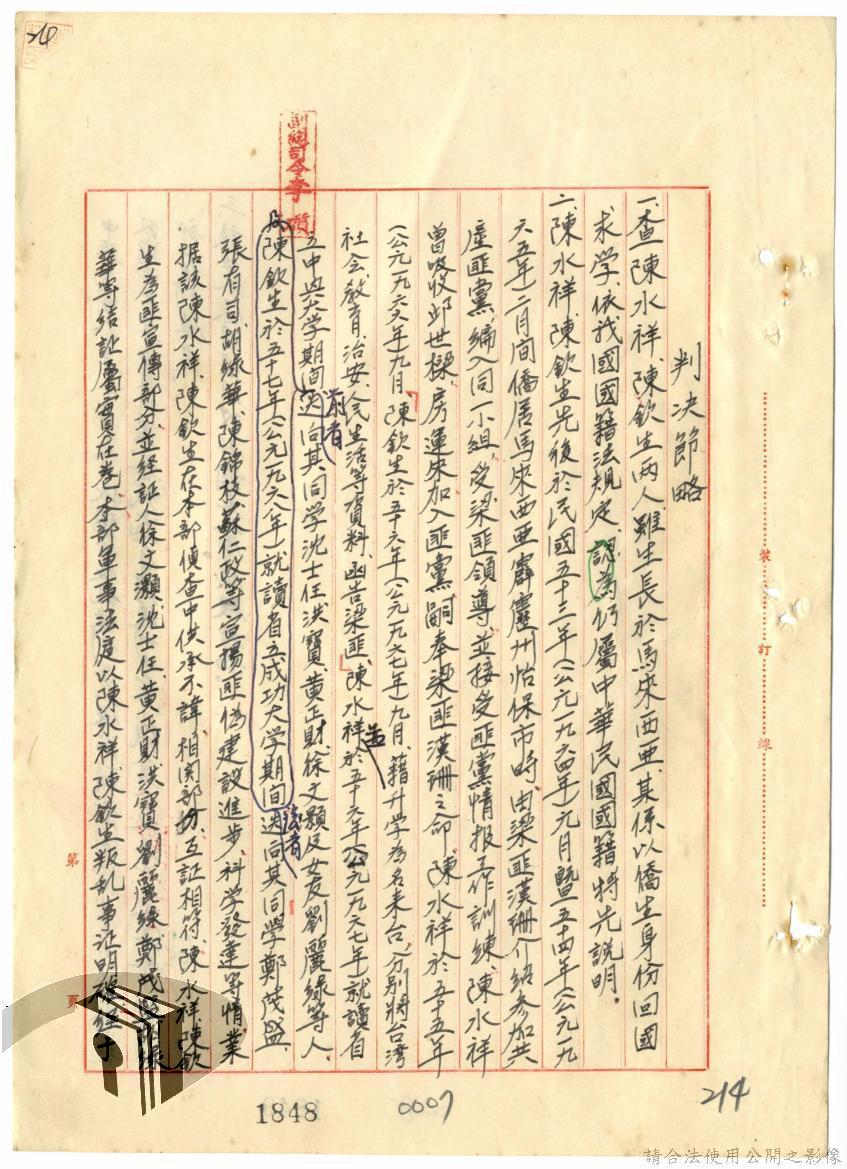 214
副總司令李
判决節略
一、查陳水祥、陳欽生兩人雖生長於馬來西亜、其係以僑生身份回國
求学、依我國國籍法規定、認為仍屬中華民國國籍特先說明。
二、陳水祥、陳欽生先後於民國五十三年(公元一九六四年)元月暨五十四年(公元一九
六五年)二月間僑居馬來西亜霹靂州怡保市時、由梁匪漢珊介紹參加共
產匪黨、編入同一小組、受梁匪領導、並接受匪黨情报工作訓練、陳水祥
曾吸收邱世樑、房運來加入匪黨、嗣奉梁匪漢珊之命、陳水祥於五十五年
(公元一九六六年)九月、陳欽生於五十六年(公元一九六七年)九月、藉升学為名來台、分別將台湾
社会、教育、治安、人民生活等資料、函告梁匪、陳水祥於五十六年(公元一九六七年)就讀省
立中興大学期間迭向其同学沈士任、洪寶、黃正財、徐文顥及女友劉麗緑等人、
前者
及陳欽生於五十七年(公元一九六八年)就讀省立成功大学期間迭向其同學鄭茂盛、
後者
張有目、胡緑華、陳錦枝、蘇仁政等宣揚匪偽建設進步、科学發達等情業
据該陳水祥、陳欽生在本部偵查中供承不諱、相関部份、互証相符、陳水祥、陳欽
生為匪宣傳部分、並経証人徐文灝、沈士任、黃正財、洪寶、劉麗緑、鄭茂盛、胡緑
華等結証屬實在卷、本部軍事法庭以陳水祥、陳欽生叛乱事証明確、経于
裝
訂
線
第
頁
1848
0007
214
請合法使用公開之影像